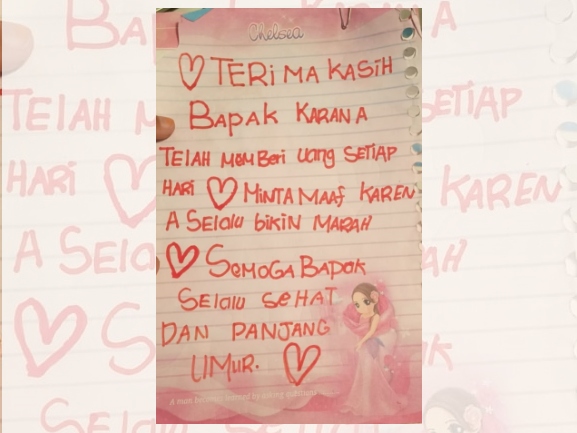 Chelsea
♡ TERIMA KASIH
BAPAK KARANA
TELAH MEMBERI UANG SETIAP
HARI ♡ MINTA MAAF KAREN
A SELALU BIKIN MARAH
♡ SEMOGA BAPAK
SELALU SEHAT
DAN PANJANG
UMUR. ♡